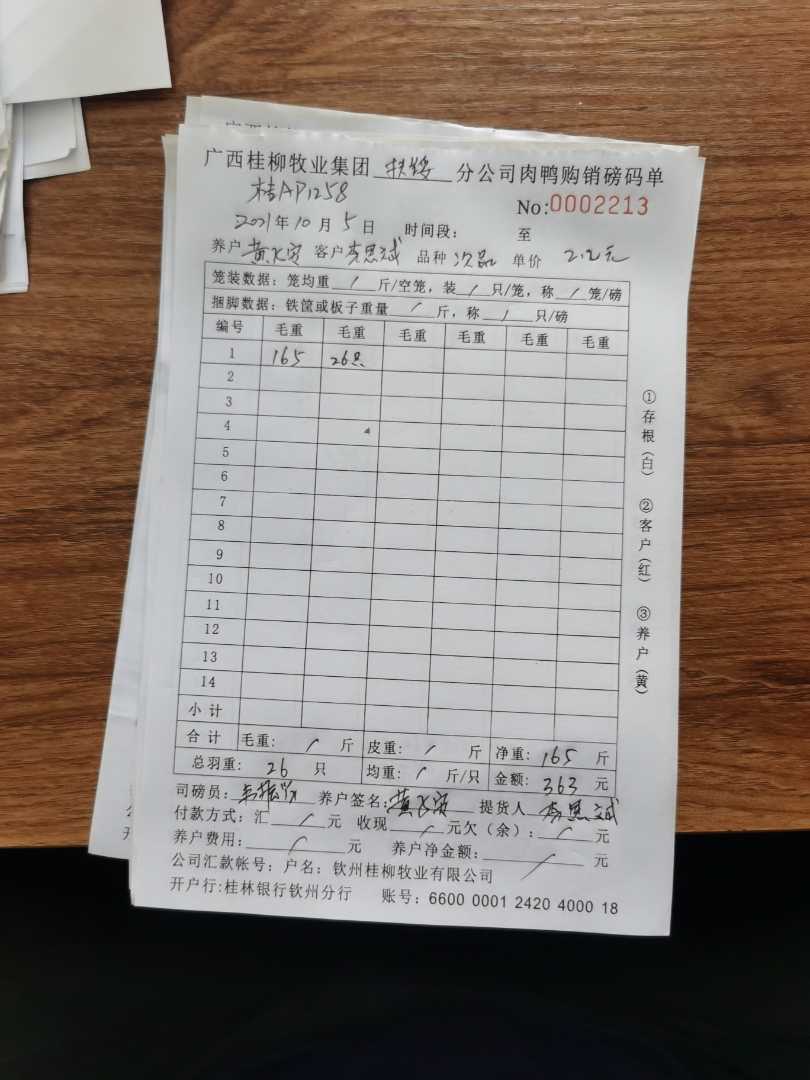 广西桂柳牧业集团 扶绥 分公司肉鸭购销磅码单
桂AP1258 No:0002213
2021年10月5日 时间段: 至
养户 黄 客户 李思斌 品种 次品 单价 2.2元
笼装数据: 笼均重 / 斤/空笼, 装 / 只/笼, 称 / 笼/磅
捆脚数据: 铁筐或板子重量 / 斤, 称 / 只/磅
编号 毛重 毛重 毛重 毛重 毛重 毛重
1 165 26只
2
3
4
5
6
7
8
9
10
11
12
13
14
小计
合计 毛重: / 斤 皮重: / 斤 净重: 165 斤
总羽重: 26 只 均重: / 斤/只 金额: 363 元
司磅员: 养户签名: 黄 提货人 李思斌
付款方式: 汇 / 元 收现 / 元欠（余）: / 元
养户费用: / 元 养户净金额: / 元
公司汇款帐号: 户名: 钦州桂柳牧业有限公司
开户行:桂林银行钦州分行 账号: 6600 0001 2420 4000 18
①存根（白） ②客户（红） ③养户（黄）